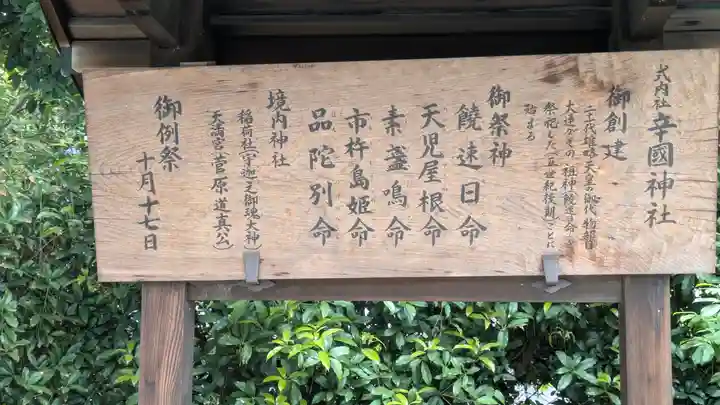 式内社 辛國神社
御創建
二十代雄略天皇の御代、物部
大連がその祖神饒速日命を
祭祀した(五世紀後期)ことに
始まる
御祭神
饒速日命
天児屋根命
素盞嗚命
市杵島姫命
品陀別命
境内神社
稲荷社(宇迦之御魂大神)
天満宮(菅原道真公)
御例祭
十月十七日